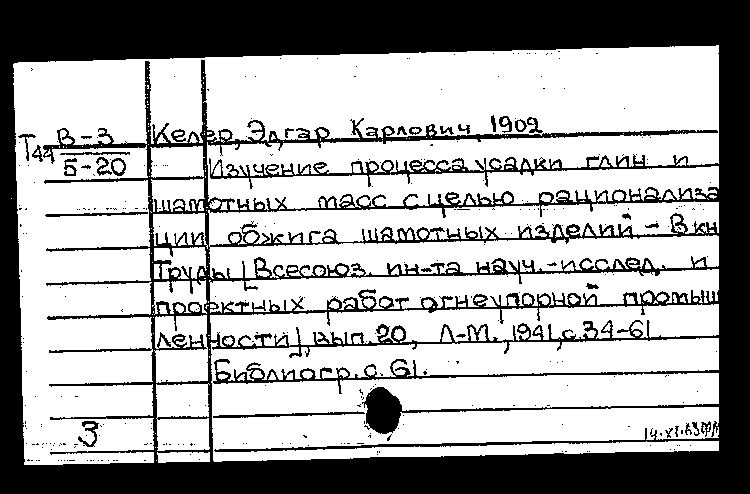 Т44 В-3 Келер, Эдгар Карлович, 1902
Б-20 Изучение процесса усадки глин и
шамотных масс с целью рационализа
ции обжига шамотных изделий. - В кн
Труды [Всесоюз. ин-та науч.-исслед. и
проектных работ огнеупорной промыш
ленности], вып. 20, Л-М., 1941, с. 34-61
Библиогр. с. 61.
3
14.XI.63